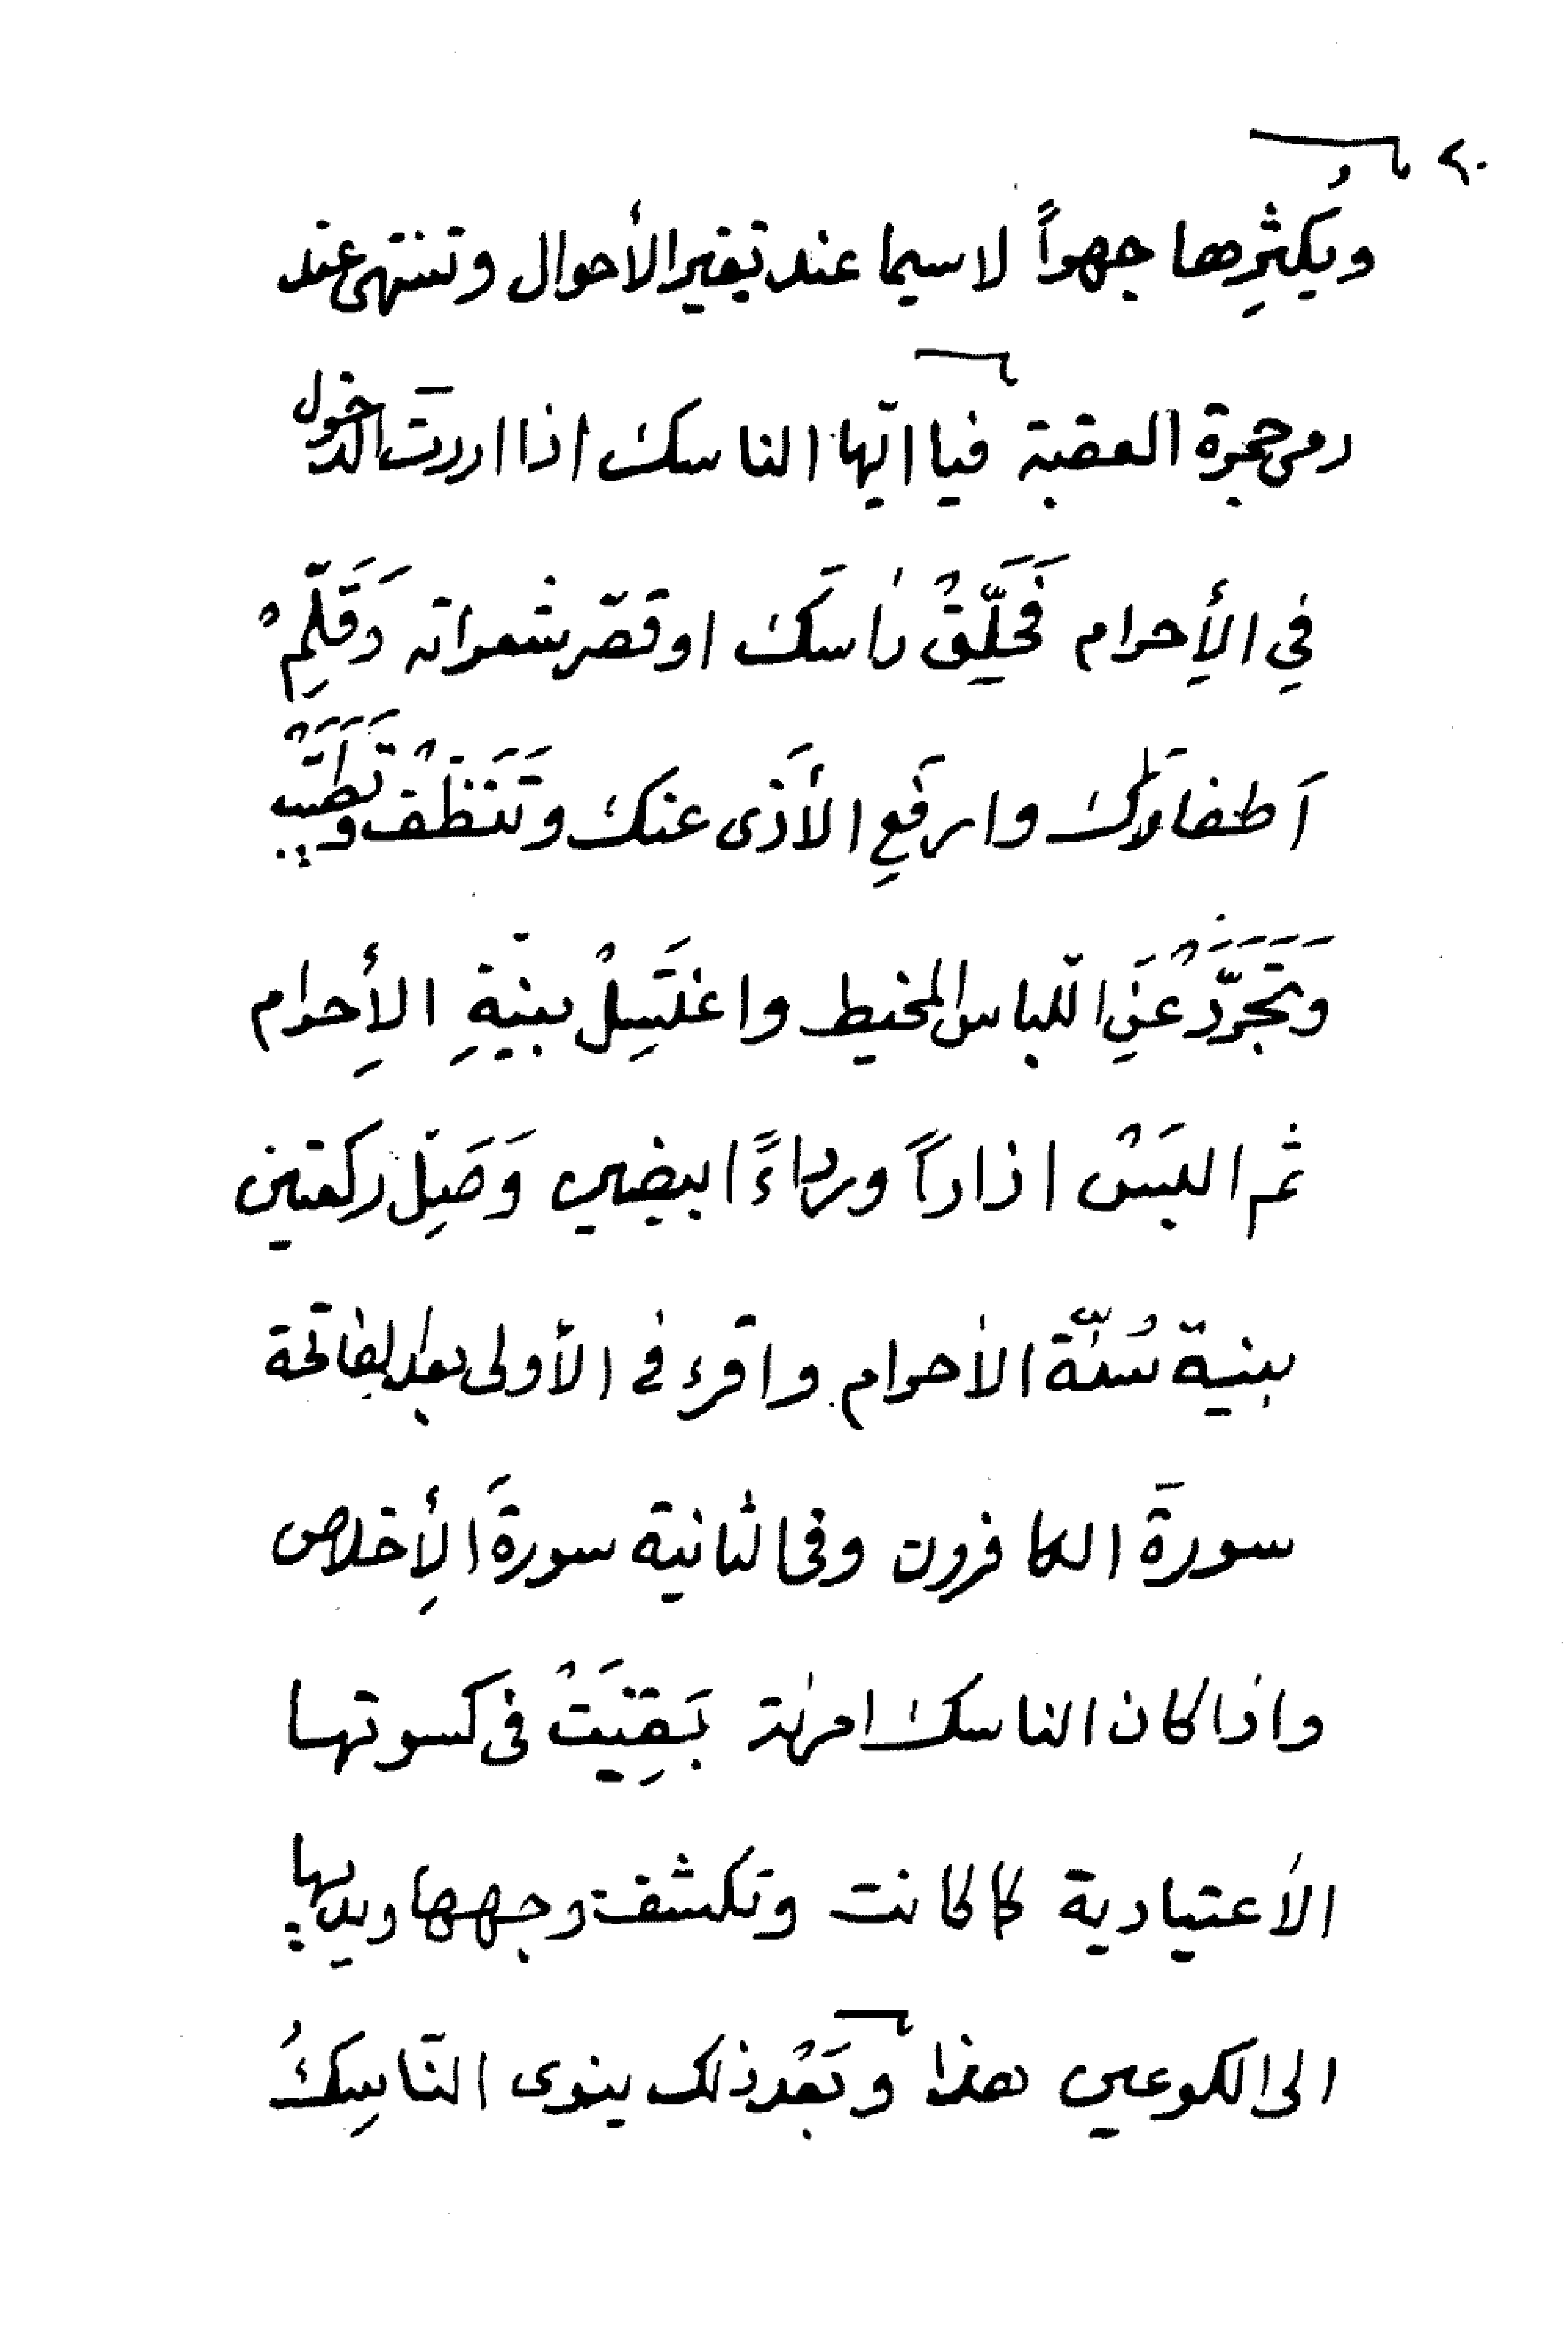 ٢٠
ويُكثِرها جهراً لاسيما عند تغير الأحوال وتنتهي عند
رمي جمرة العقبة فيا ايّها الناسك اذا اردتَ الدخول
في الإحرام فَحَلِّقْ رأسَكَ او قصّر شعراته وَقَلِّمْ
اَظفارَك وارفَعِ الأذى عنك وتَنَظَّفْ وتَطَيَّبْ
وَتَجَرَّدْ عَنِ اللّباس المخيط واغتَسِلْ بنيّةِ الإحرام
ثم البَسْ اذاراً ورداءً ابيضين وَصَلِّ ركعتين
بنية سُنّة الاحرام واقرء في الأولى بعد الفاتحة
سورةَ الكافرون وفي الثانية سورةَ الإخلاص
واذا كان الناسك امرأة بَقِيَتْ في كسوتها
الاعتيادية كما كانت وتكشف وجهها ويديها
الى الكوعين هذا وبَعْد ذلك ينوى النّاسِكُ